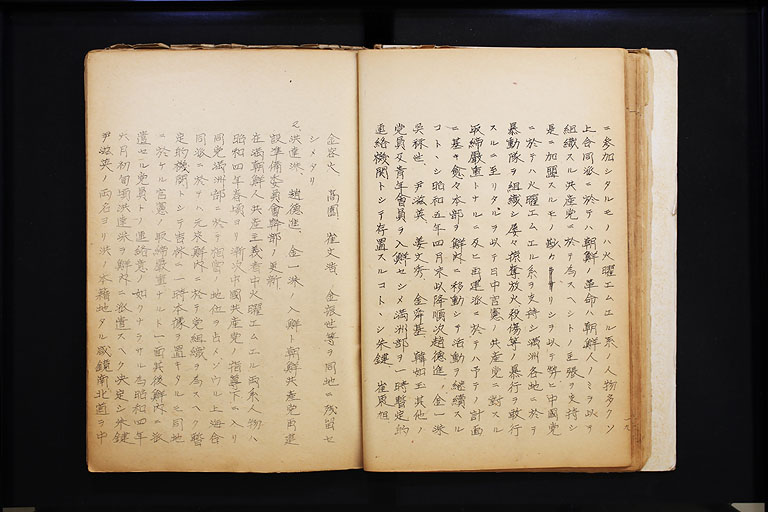 ニ参加シタルモノハ火曜エムエル系ノ人物多クシ
上合同派ニ於テハ朝鮮ノ革命ハ朝鮮人ノミヲ以テ
組織スル共産党ニ於テ為スヘシトノ主張ヲ支持シ
是ニ加盟スルモノ尠ケリシヲ以テ弊ヒ中國党
ニ於テハ火曜エムエル系ヲ支持シ満洲各地ニ於テ
暴動隊ヲ組織シ屡々掠奪放火殺傷等ノ暴行ヲ敢行
スルニ至リタルヲ以テ日中官憲ノ共産党ニ對スル
取締嚴重トナルニ及ヒ再建派ニ於テハ予テノ計画
ニ基キ愈々本部ヲ鮮内ニ移動シテ活動ヲ継續スル
コトヽシ昭和五年四月末以降順次趙德進、金一洙
吳林世、尹滋英、姜文秀、金舜基、韓如玉其他ノ
党員及青年會員ヲ入鮮セシメ満洲部ヲ一時暫定的
連絡機関トシテ存置スルコトヽシ朱鍵 崔東旭
金容火 高國 崔文 金振世等ヲ同地ニ残留セ
シメタリ
又、洪達洙、趙德進、金一洙ノ入鮮ト朝鮮共産党再建
設準備委員會幹部ノ更新
在満朝鮮人共産主義者中火曜エムエル両系人物ハ
昭和四年春頃ヨリ漸次中國共産党ノ指導下ニ入リ
同党満洲部ニ於テ相當ノ地位ヲ占メソウル上海合
同派ニ於テハ元来鮮内ニ於テ党組織ヲ為スヘク暫
定的機関トシテ吉林ニ一時本據ヲ置キタルモ同地
ニ於ケル官憲ノ取締嚴重ナルト一面其後鮮内ニ派
遣セル党員トノ連絡意ノ如クナラサル為昭和四年
六月初旬頃洪達洙ヲ鮮内ニ派遣スヘク決定シ朱鍵
尹滋英ノ両名ヨリ洪ノ本籍地タル咸鏡南北道ヲ中